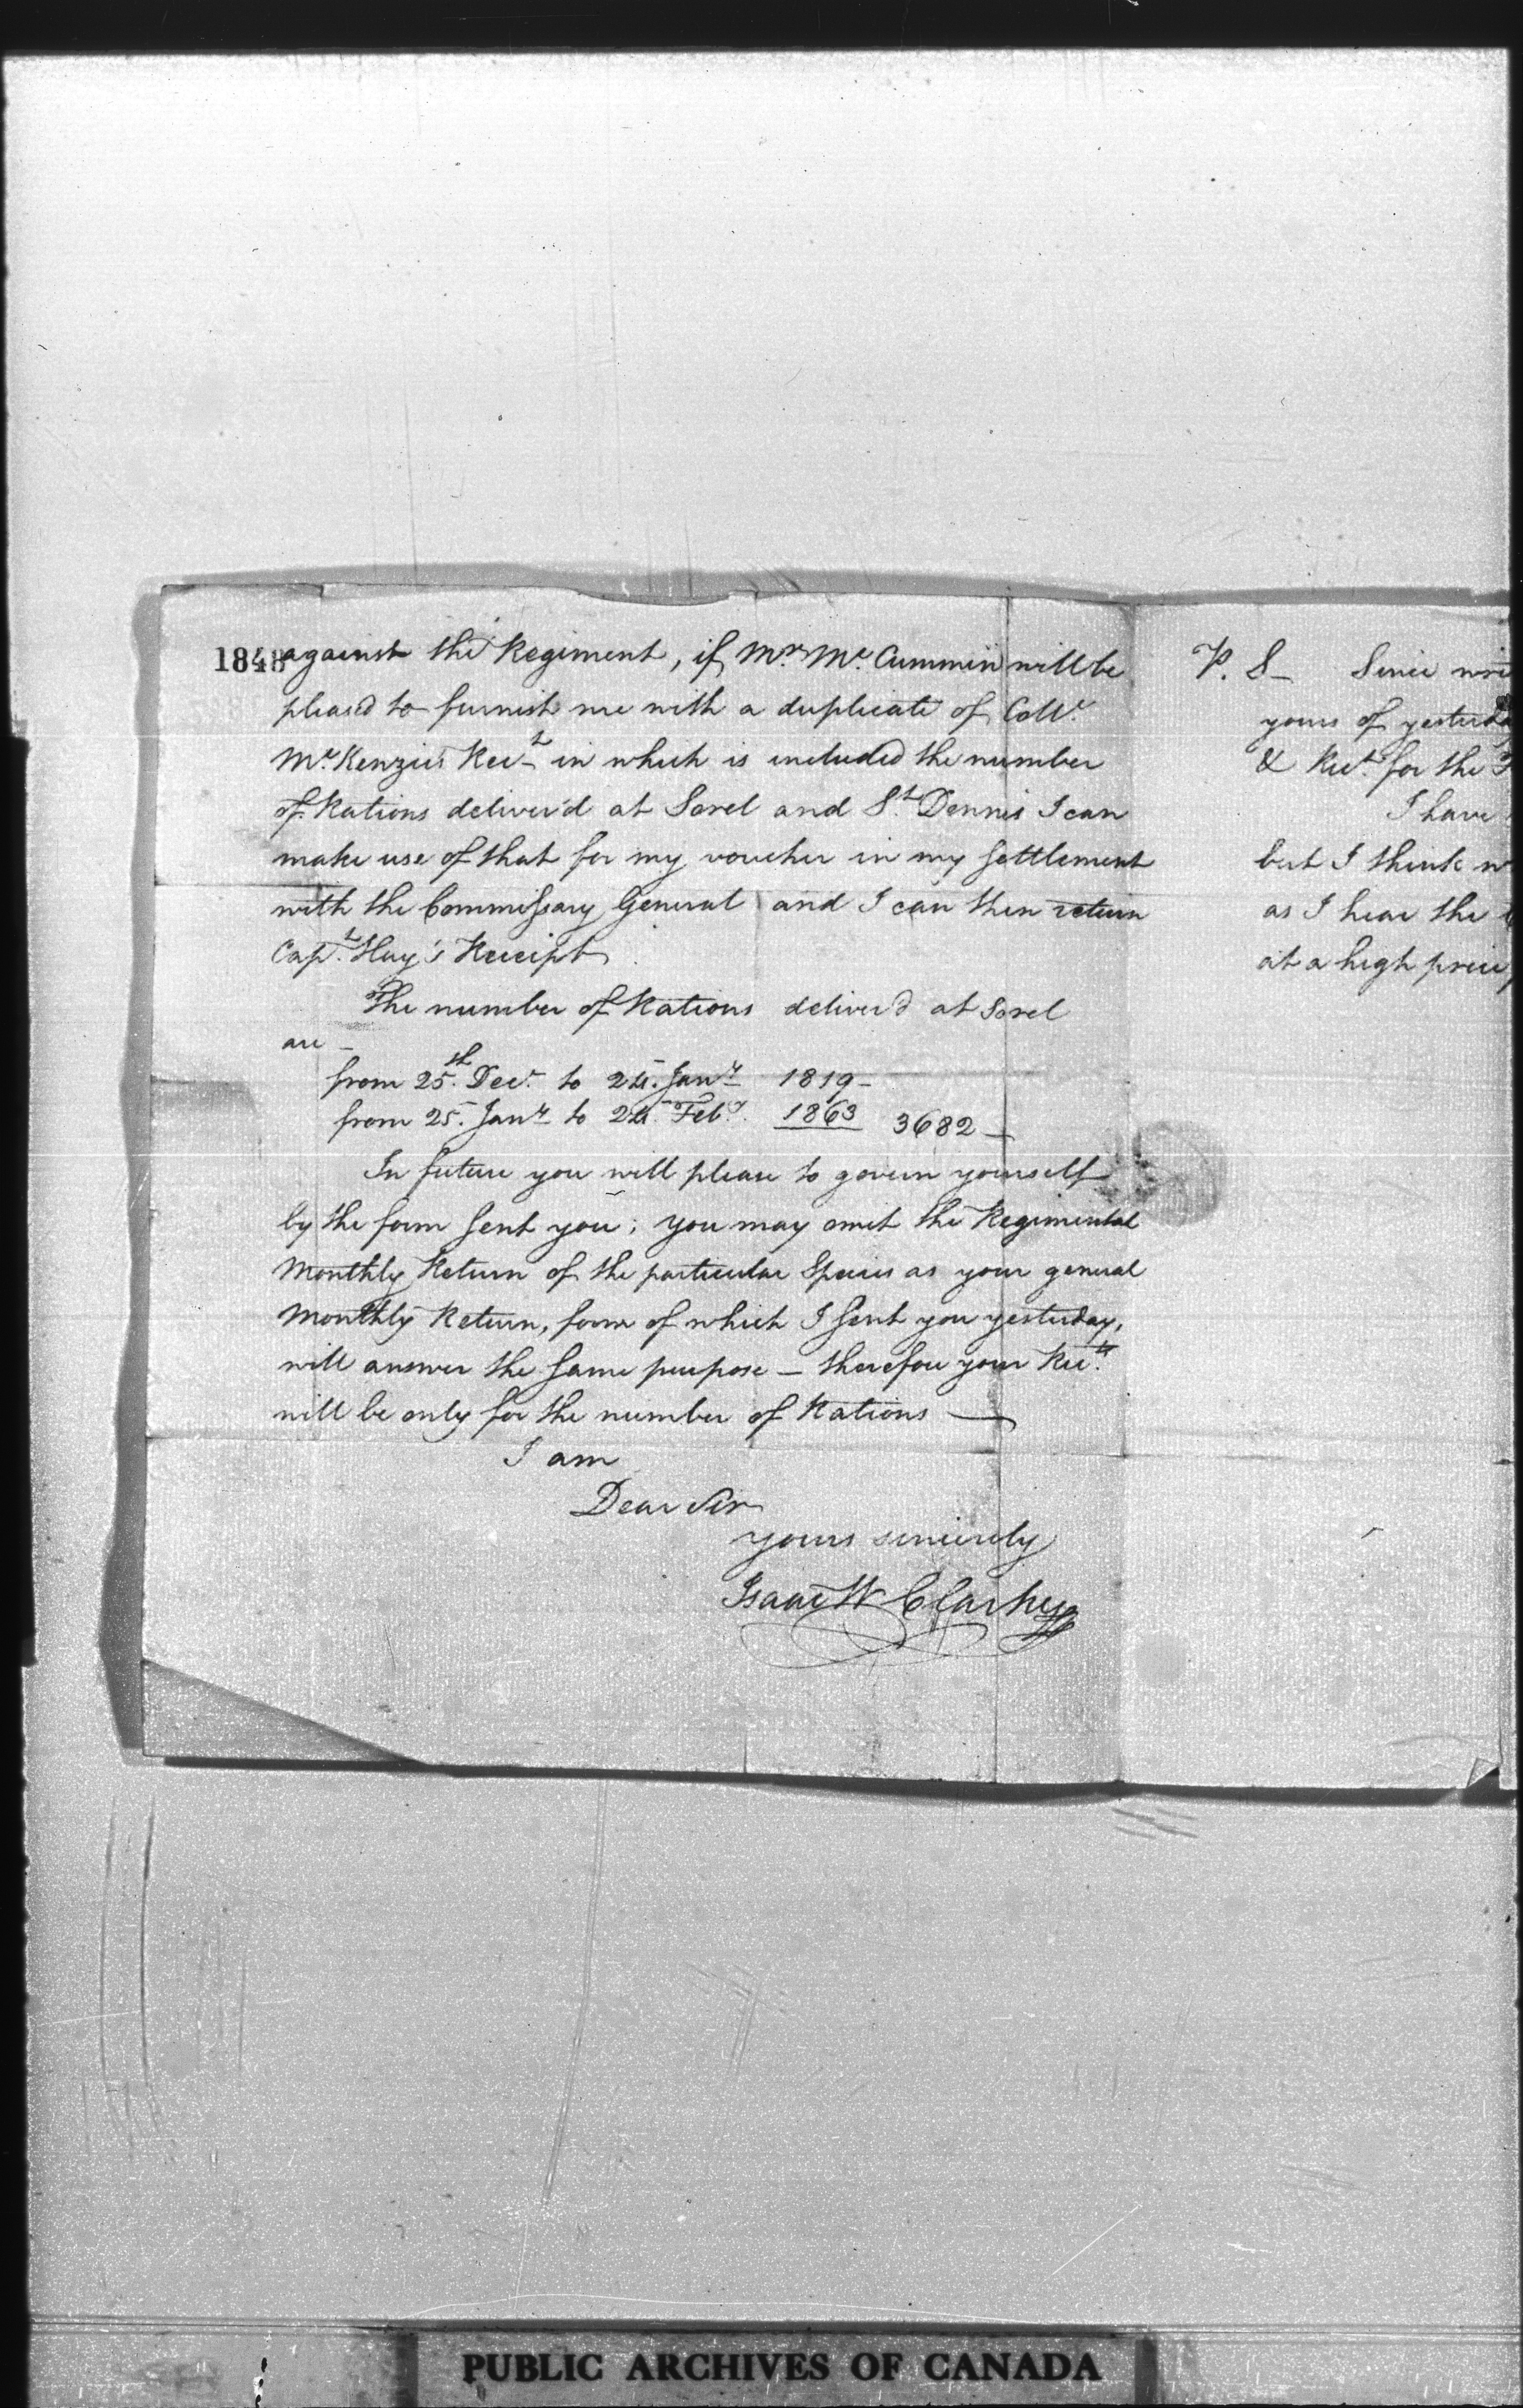 1848
against the Regiment, if Mr. Mc. Cummin will be
pleas'd to furnish me with a duplicate of Collo.
Mc. Kenzies Rect. in which is included the number
of Rations deliver'd at Sorel and St. Dennis I can
make use of that for my voucher in my settlement
with the Commissary General and I can then return
Capt. Hay's Receipt.
The number of Rations deliver'd at Sorel
are –
from 25th. Decr. to 24. Jany. 1819 –
from 25. Jany. to 24. Feby. 1863 3682 –
In future you will please to govern yourself
by the form sent you; you may omit the Regimental
Monthly Return of the particular Species as your general
Monthly Return, form of which I sent you yesterday,
will answer the same purpose – therefore your Rects.
will be only for the number of Rations –
I am
Dear Sir
yours sincerely
Isaac W Clarke
P. S – Since
yours of
& Rect. for the
I have
but I think
as I hear the
at a high price
PUBLIC ARCHIVES OF CANADA